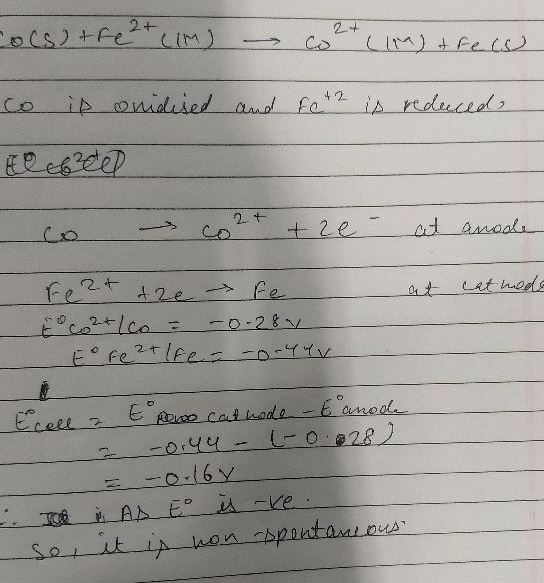 Co(s) + Fe²⁺ (1M) → Co²⁺ (1M) + Fe(s)
Co is onidised and Fe⁺² is reduced.
Co → Co²⁺ + 2e⁻ at anode
Fe²⁺ + 2e → Fe at cathode
E°Co²⁺/Co = -0.28v
E° Fe²⁺/Fe = -0.44v
E°cell = E° cathode - E°anode
= -0.44 - (-0.028)
= -0.16v
∴ As E° is -ve.
So, it is non-spontaneous.